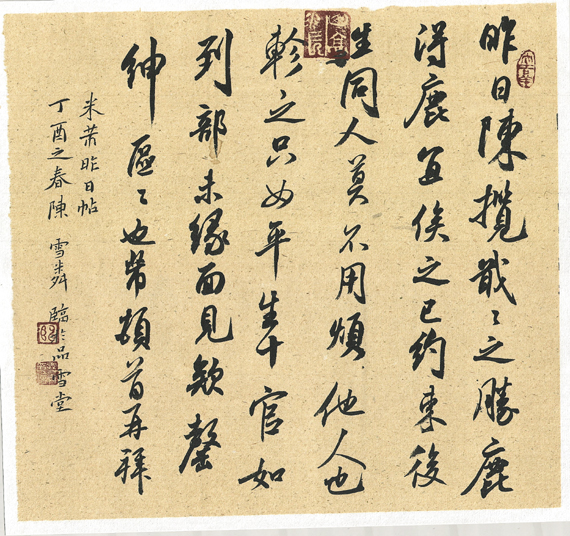 昨日陳攬戢〻之勝鹿
得鹿宜俟之已約束後
生同人莫不用煩他人也
軫之只如平生十官如
到部未緣面見欵罄
紳區〻也芾頓首再拜
米芾昨日帖
丁酉之春陳雪臨於品雪堂